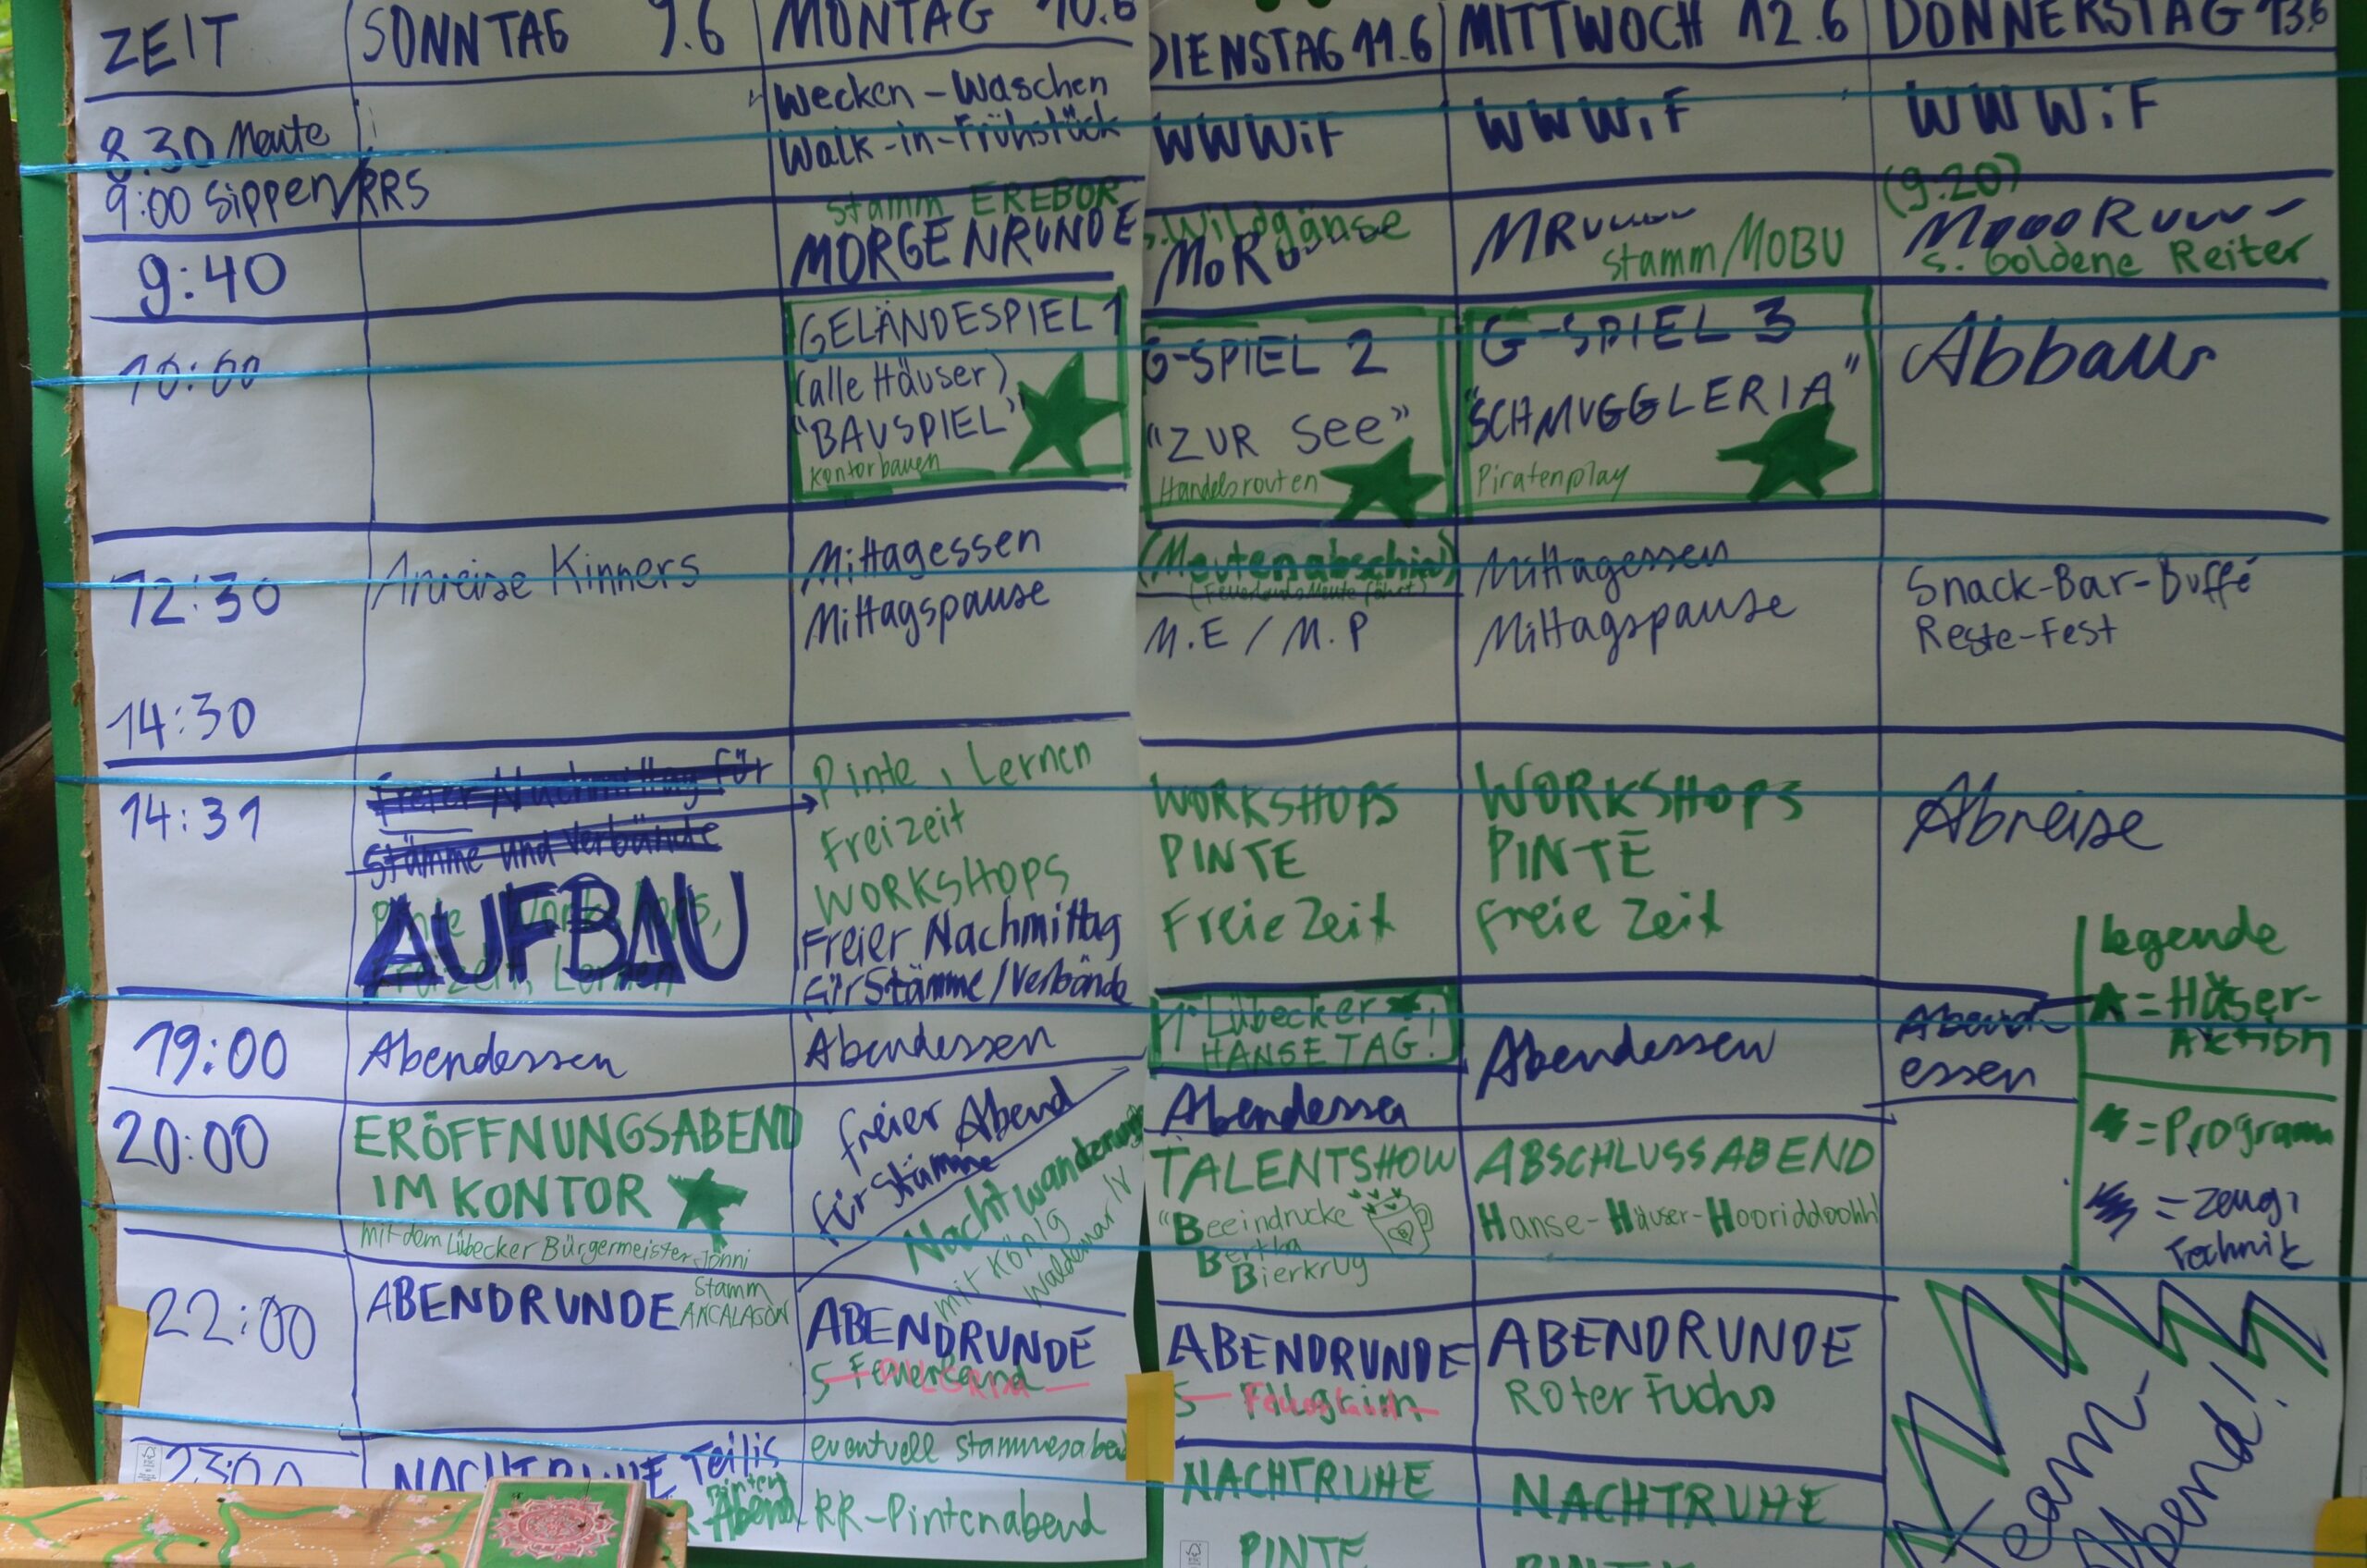 ZEIT
SONNTAG 9.6
MONTAG 10.6
DIENSTAG 11.6
MITTWOCH 12.6
DONNERSTAG 13.6
8.30 Meute
9:00 Sippen/RRS
Wecken-Waschen
Walk-in-Frühstück
WWWiF
WWWiF
WWWiF
9:40
Stamm EREBOR
MORGENRUNDE
S. Wildgänse
MoRuuuu
MRuuuu
Stamm MOBU
(9.20)
MoooRuuu-
S. Goldene Reiter
10:00
GELÄNDESPIEL 1
(alle Häuser)
"BAUSPIEL"
Kontorbauen
G-SPIEL 2
"ZUR See"
Handelsrouten
G-SPIEL 3
"SCHMUGGLERIA"
Piratenplay
Abbau
12:30
14:30
Anreise Kinners
Mittagessen
Mittagspause
(Meutenabschied)
M.E / M.P
Mittagessen
Mittagspause
Snack-Bar-Buffé
Reste-Fest
14:31
Freier Nachmittag für
Stämme und Verbände
AUFBAU
Pinte, Lernen
Freizeit
WORKSHOPS
Freier Nachmittag
für Stämme/Verbände
WORKSHOPS
PINTE
Freie Zeit
WORKSHOPS
PINTE
Freie Zeit
Abreise
19:00
Abendessen
Abendessen
Lübecker
HANSETAG!
Abendessen
Abendessen
Abend-
essen
20:00
ERÖFFNUNGSABEND
IM KONTOR
mit dem Lübecker Bürgermeister Jonni
freier Abend
für Stämme
Nachtwanderung
mit König
Waldemar IV
TALENTSHOW
"Beeindrucke
Bertha
Bierkrug
ABSCHLUSSABEND
Hanse-Häuser-Hooriddoohh!
22:00
ABENDRUNDE
Stamm
ANCALAGON
ABENDRUNDE
S Feuerland
ABENDRUNDE
S
ABENDRUNDE
Roter Fuchs
23:00
NACHTRUHE Teilis
Abend
eventuell Stammesabend
RR-Pintenabend
NACHTRUHE
PINTE
NACHTRUHE
Team-
Abend!
Legende
= Häuser-
Aktion
= Programm
= Zeug,
Technik